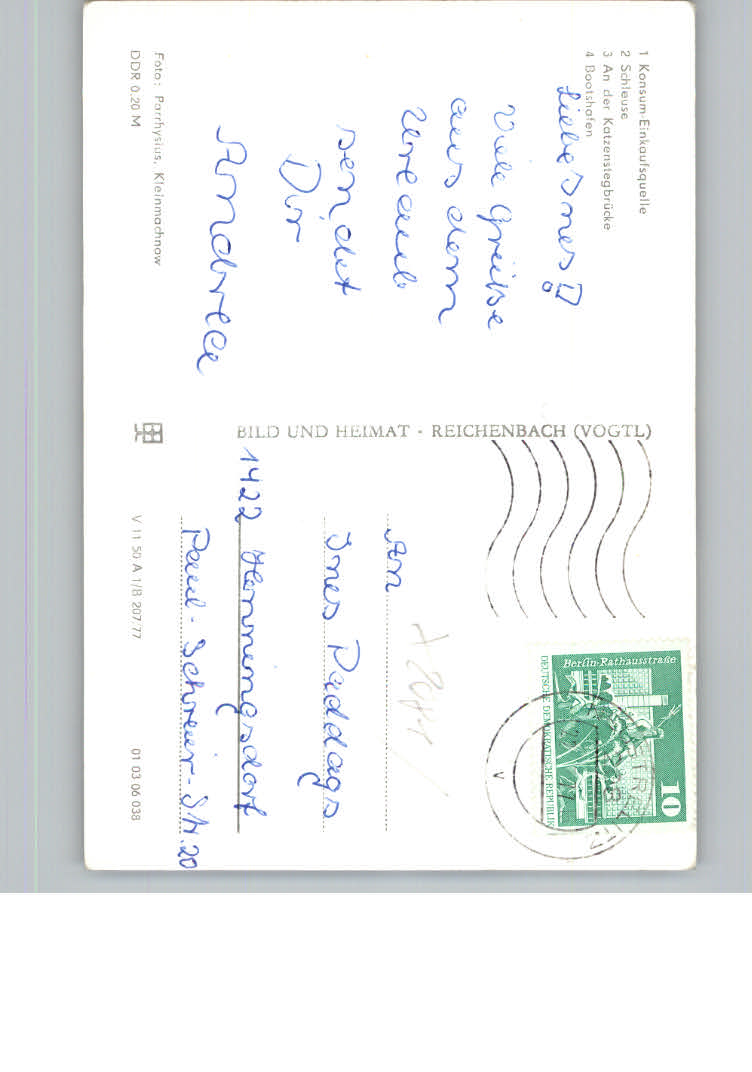 1 Konsum-Einkaufsquelle
2 Schleuse
3 An der Katzenstegbrücke
4 Bootshafen
Liebe Ines!
Viele Grüße
aus dem
Urlaub
sendet
Dir
Andrea
Foto: Parrhysius, Kleinmachnow
DDR 0,20 M
BILD UND HEIMAT · REICHENBACH (VOGTL)
Berlin-Rathausstraße
10
DEUTSCHE DEMOKRATISCHE REPUBLIK
An
Ines Paddags
1422 Hennningsdorf
Paul-Schreier-Str. 20
V 11 50 A 1/B 207/77
01 03 06 038